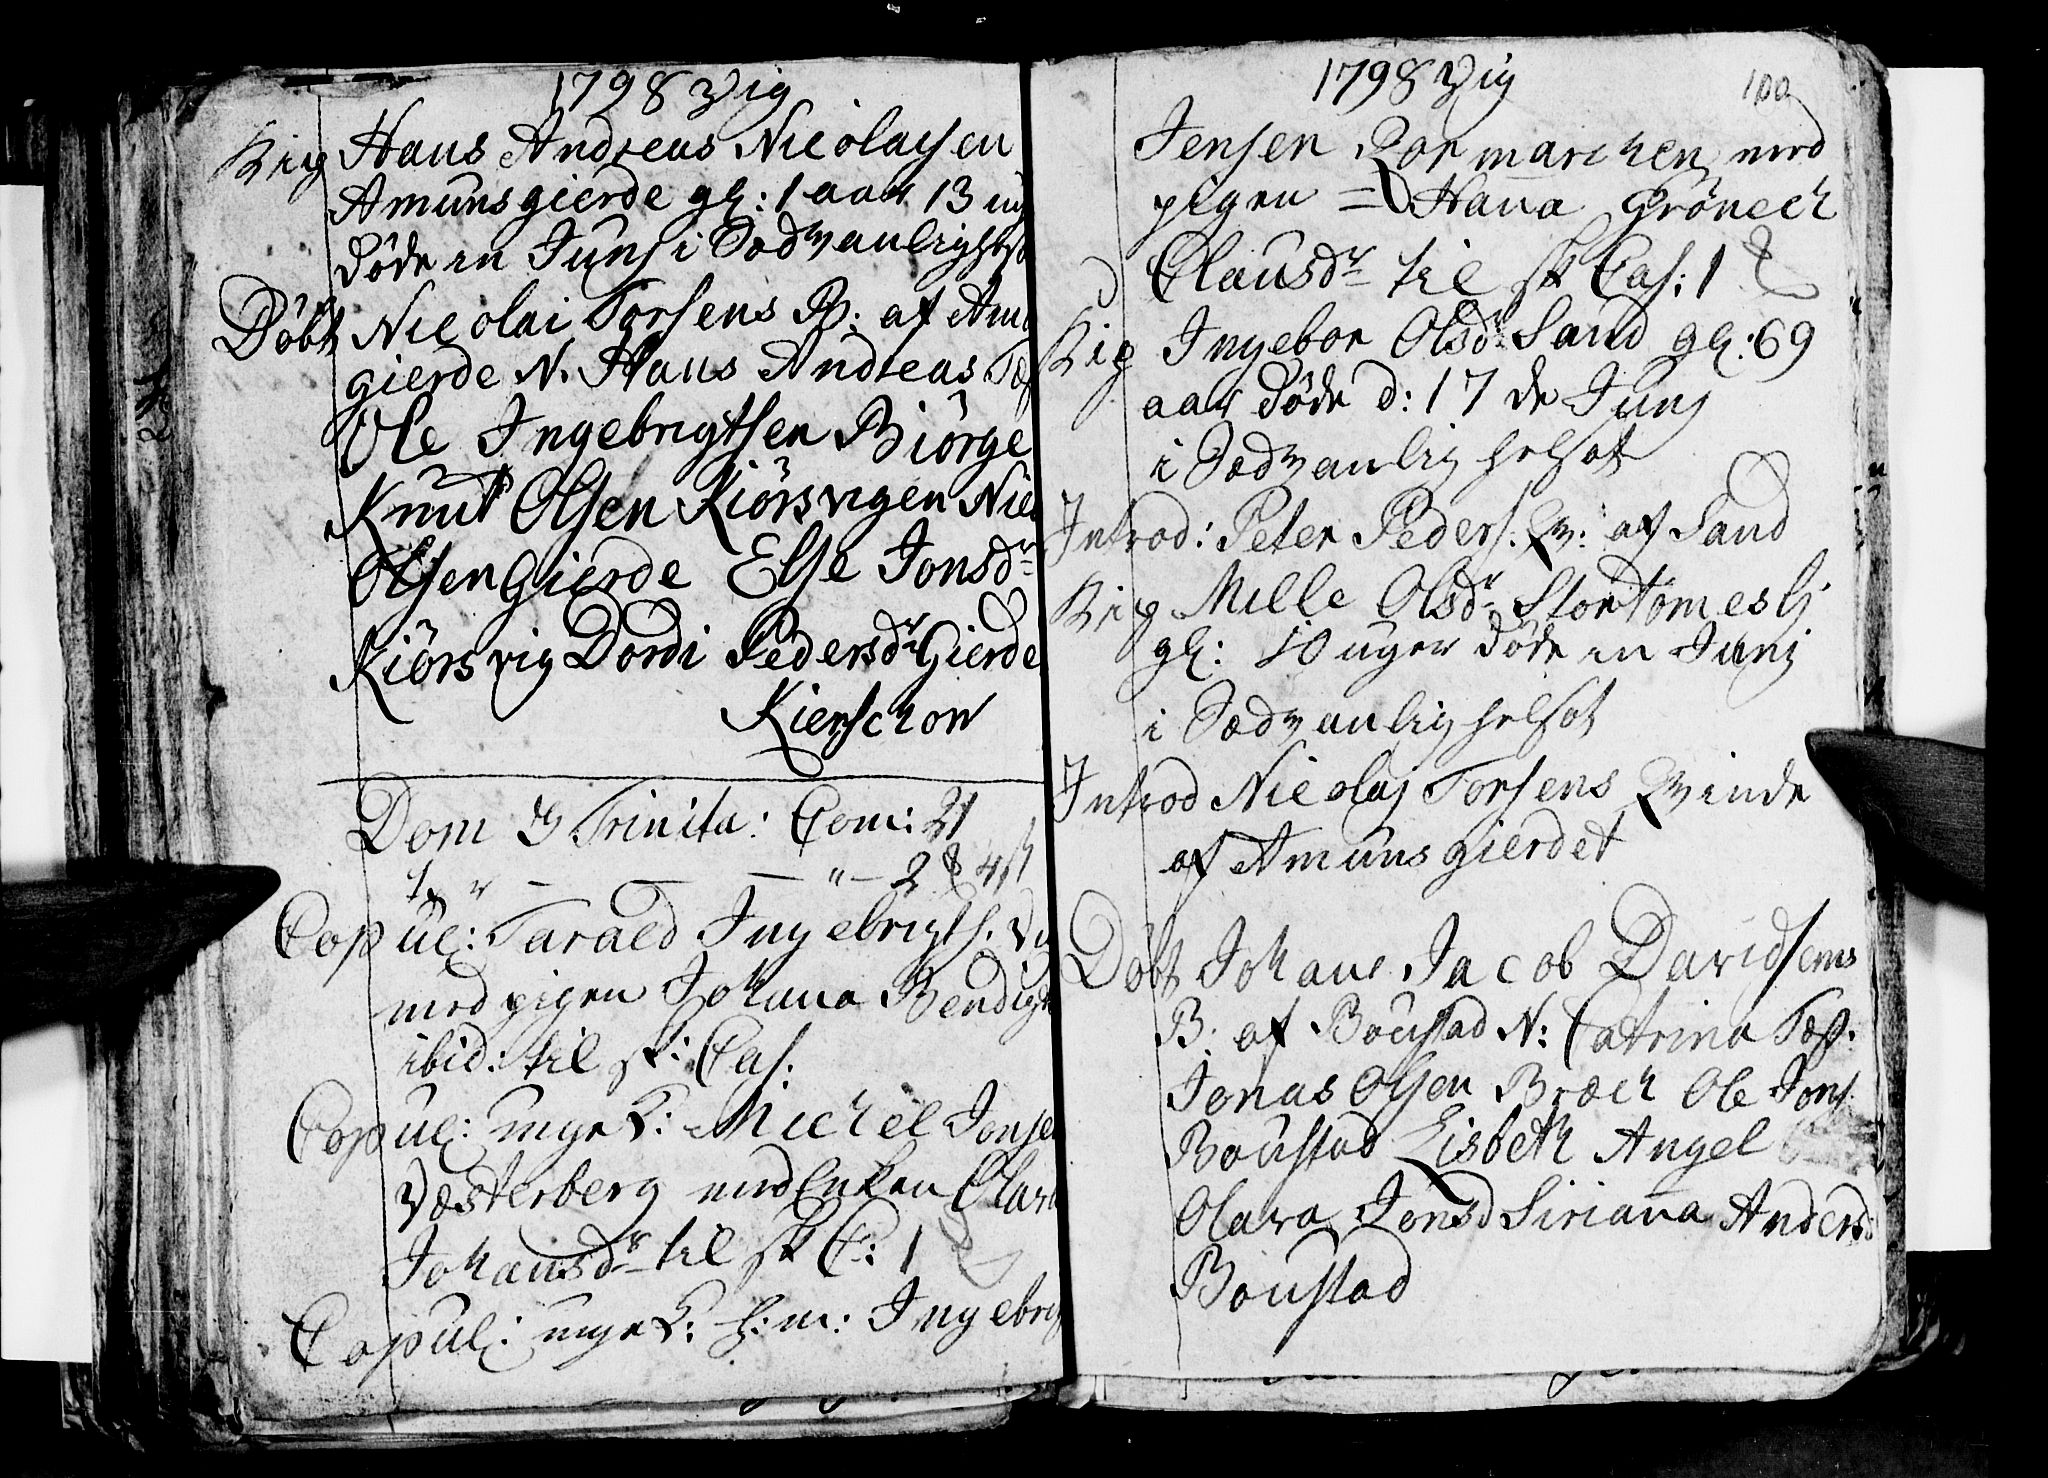 1798 Vig
Hans Andreas Nicolaysen
Amunsgierde gl: 1 aar 13 ug
døde in Junj i Sædvanlig
Døbt Nicolai Torsens B: af Amu
gierde N. Hans Andreas Tæs
Ole Ingebrigtsen Biørge
Knut Olsen Kiørsvigen Nic
Olsen Gierde Else Jonsdr
Kiørsvig Dordi Pedersdr Gierde
Kierschow
Dom 3 Trinita: Com: 21
" — — — " — 2 4
Copul: Tarald Ingebrigts. Vi
med pigen Johana Bendigt
ibid: til sk: Cas.
Copul: unge K: Michel Jonse
Væsterberg med Enken Olava
Johansdr til sk C: 1
Copul: unge K: h: m: Ingebrig
1798 Vig
100
Jensen Rormarchen med
pigen = Hana Grönech
Clausdr til sk Cas: 1
Ingebor Olsdr Sand gl: 69
aar døde d: 17 de Junj
i Sædvanlig helsot
Introd: Peter Peders. Qv: af Sand
Mille Olsdr Stortømeslj
gl: 10 uger døde in Junj
i Sædvanlig helsot
Introd Nicolaj Torsens Qvinde
af Amunsgierdet
Døbt Johans Jacob Davidsens
B: af Boustad N: Catrina Tæs.
Jonas Olsen Bræch Ole Jons.
Boustad Lisbeth Angel
Olava Jonsd Siriana Andersd:
Boustad